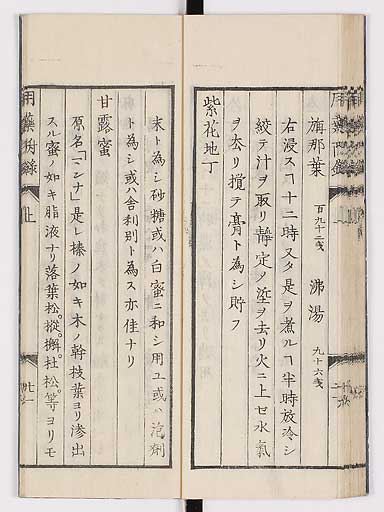 旃那葉 百九十二戔 沸湯 九十六戔
右浸スヿ十二時又タ是ヲ煮ルヿ半時放冷シ
絞テ汁ヲ取リ静定ノ滓ヲ去リ火ニ上セ水氣
ヲ去リ攪テ膏ト為シ貯フ
紫花地丁
末ト為シ砂糖或ハ白蜜ニ和シ用ユ或ハ泡劑
ト為シ或ハ舎利別ト為ス亦佳ナリ
甘露蜜
原名「マンナ」是レ榛ノ如キ木ノ幹枝葉ヨリ滲出
スル蜜ノ如キ脂液ナリ落葉松。樅。檞。杜松。等ヨリモ